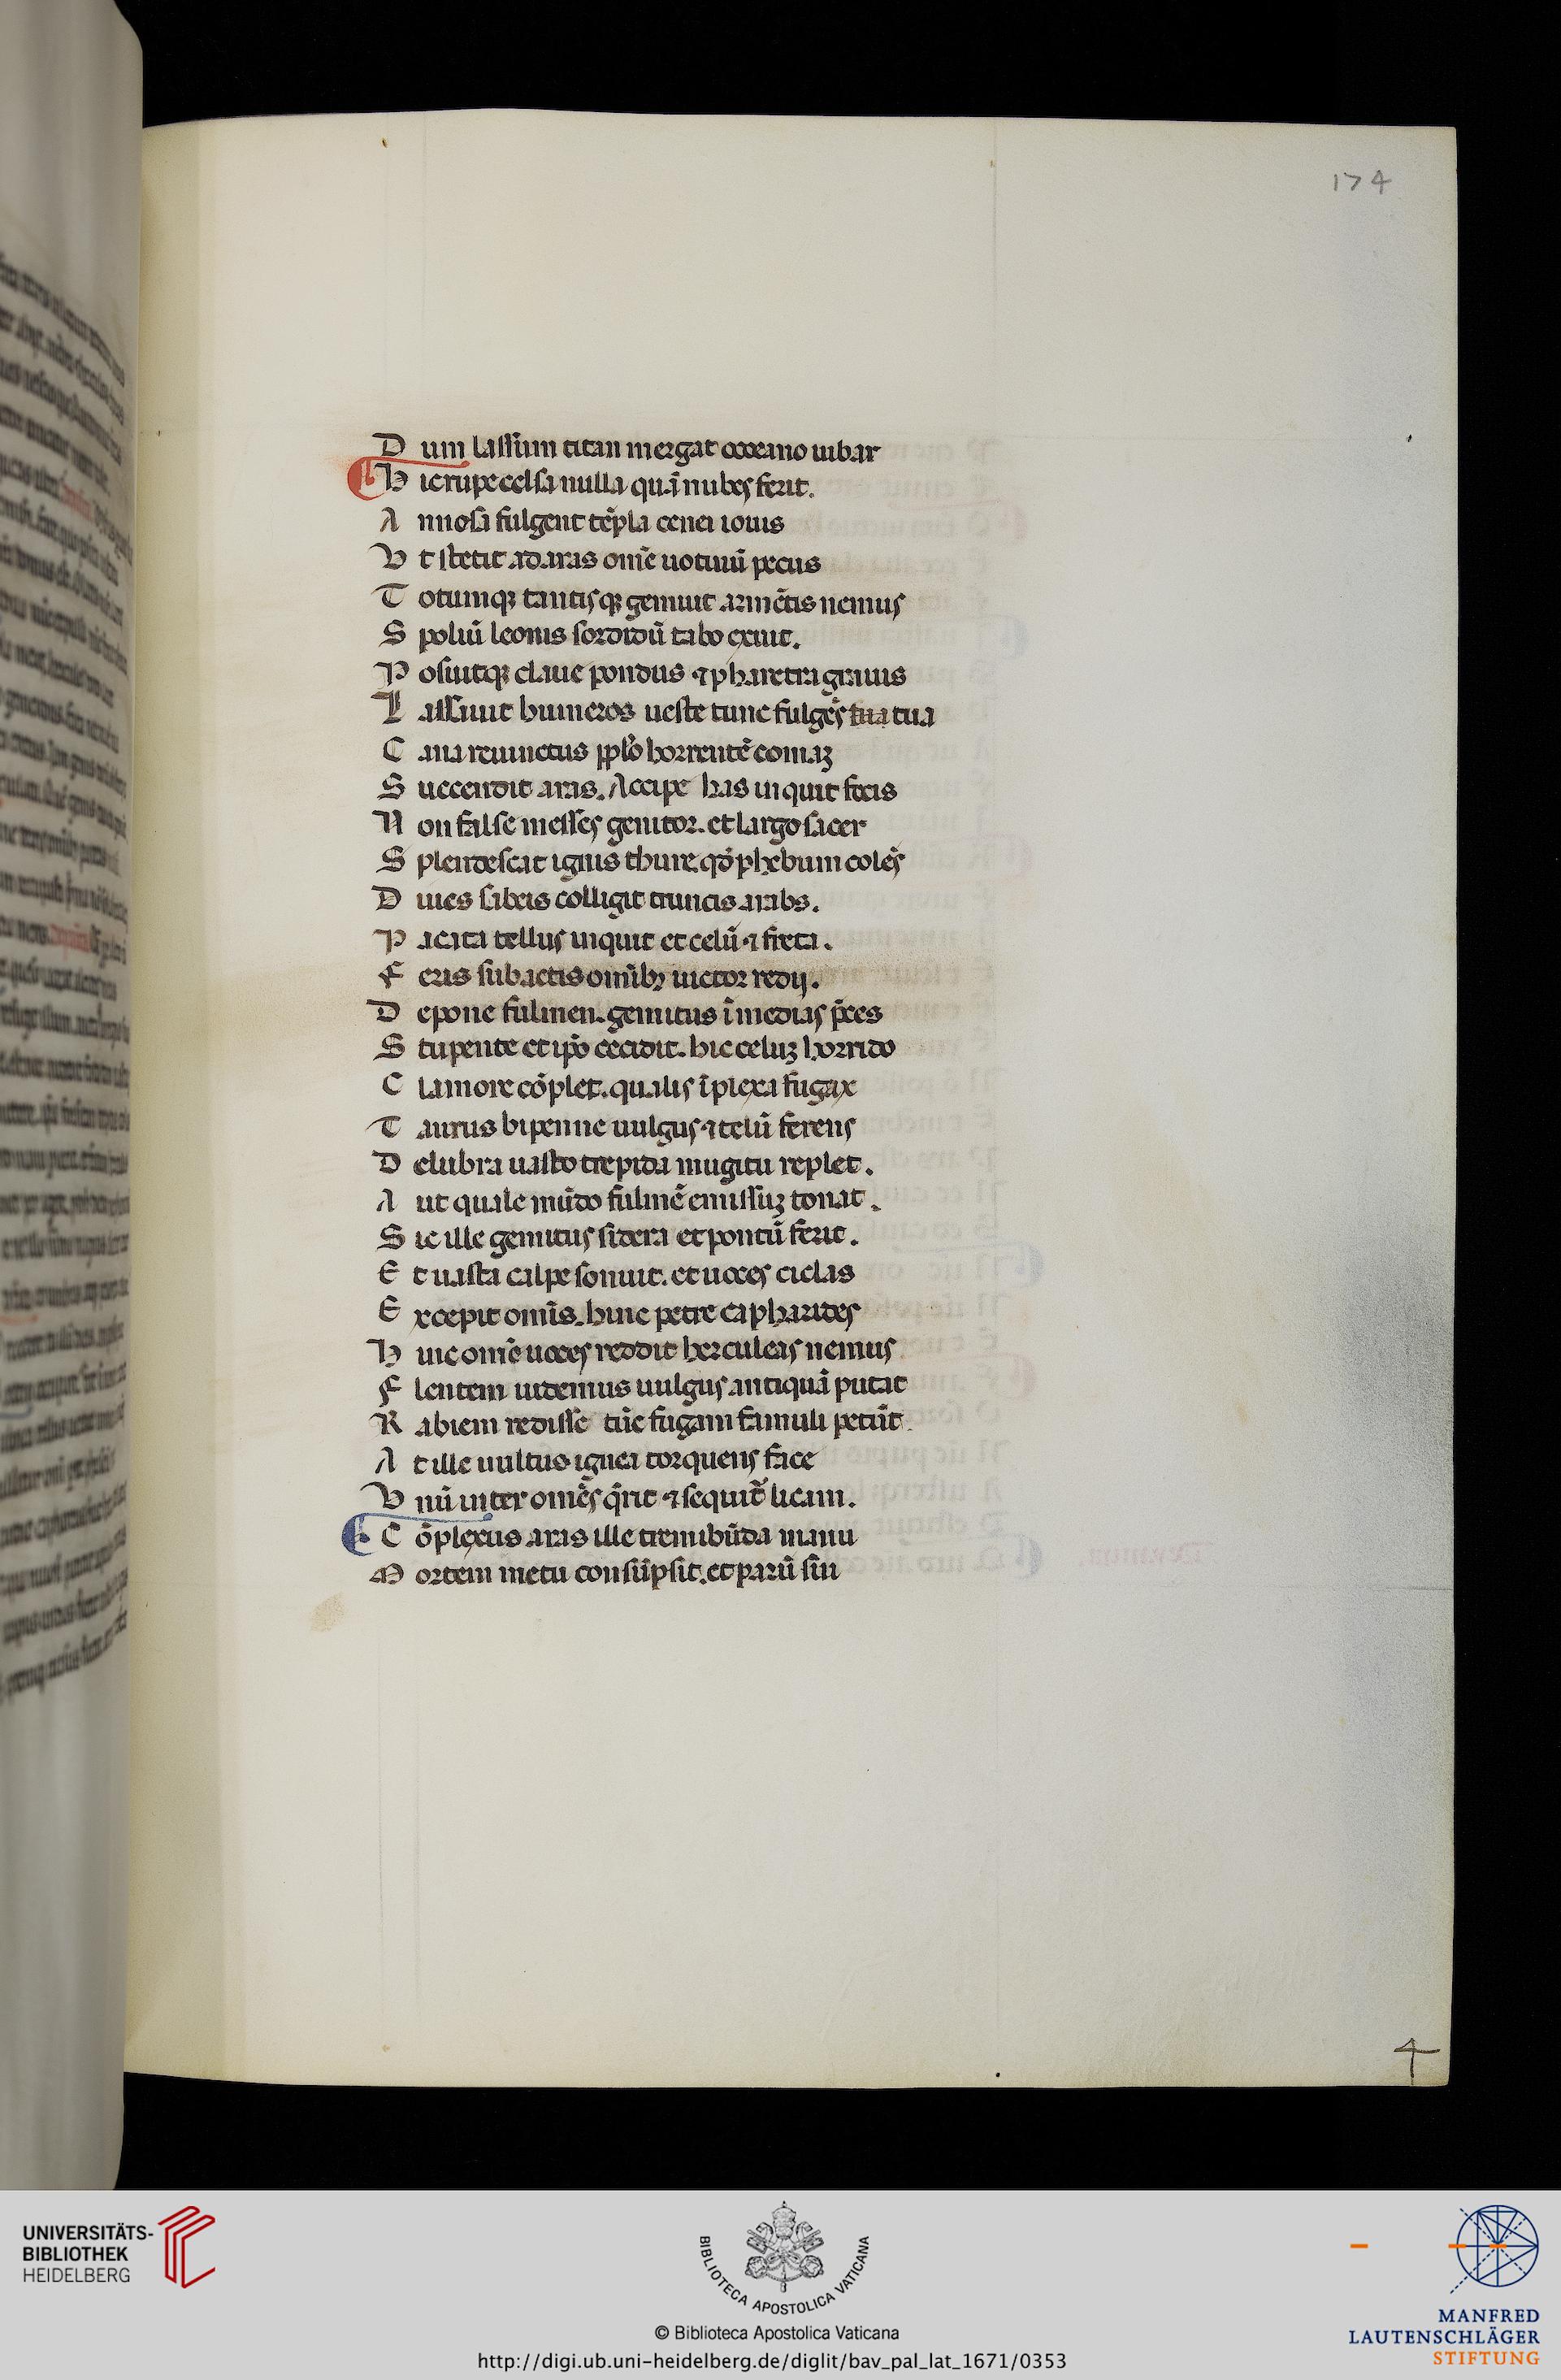 174
D um lassum titan mergat occeano iubar
H ic rupe celsa nulla quā nubes ferit.
A nnosa fulgent tēpla cenei iouis
V t stetit ad aras omē uotiuū pecus
T otumqȝ tantisqȝ gemuit armētis nemus
S poliū leonis sordidū tabo exuit.
P osuitqȝ claue pondus ⁊ pharetra grauis
L axauit humeros ueste tunc fulgēs tua
C ana reuinctus horrentē comaȝ
S uccendit aras. Accipe has inquit focis
N on false messes genitor. et largo sacer
S plendescat ignis thure. qď phebum colēs
D iues sabeis colligit truncis arabs.
P acata tellus inquit et celū ⁊ freta.
F eris subactis omībȝ uictor redij.
D epone fulmen. gemitus ī medias p̄ces
S tupente et ip̄o cecidit. hic celuȝ horrido
C lamore cōplet. qualis īplexa fugax
T aurus bipenne uulgus ⁊ telū ferens
D elubra uasto trepida mugitu replet.
A ut quale mūdo fulmē emissuȝ tonat.
S ic ille gemitus sidera et pontū ferit.
E t uasta calpe sonuit. et uoces ciclas
E xcepit omīs. hinc petre capharides
H inc omē uoces reddit herculeas nemus
F lentem uidemus uulgus antiquā putat
R abiem redisse tūc fugam famuli petūt.
A t ille uultus ignea torquens face
V nū inter omēs q̄rit ⁊ sequit̄ licam.
C ōplexus aras ille tremibūda manu
M ortem metu consūpsit. et parū sui
4
UNIVERSITÄTS-
BIBLIOTHEK
HEIDELBERG
BIBLIOTECA APOSTOLICA VATICANA
© Biblioteca Apostolica Vaticana
http://digi.ub.uni-heidelberg.de/diglit/bav_pal_lat_1671/0353
MANFRED
LAUTENSCHLÄGER
STIFTUNG